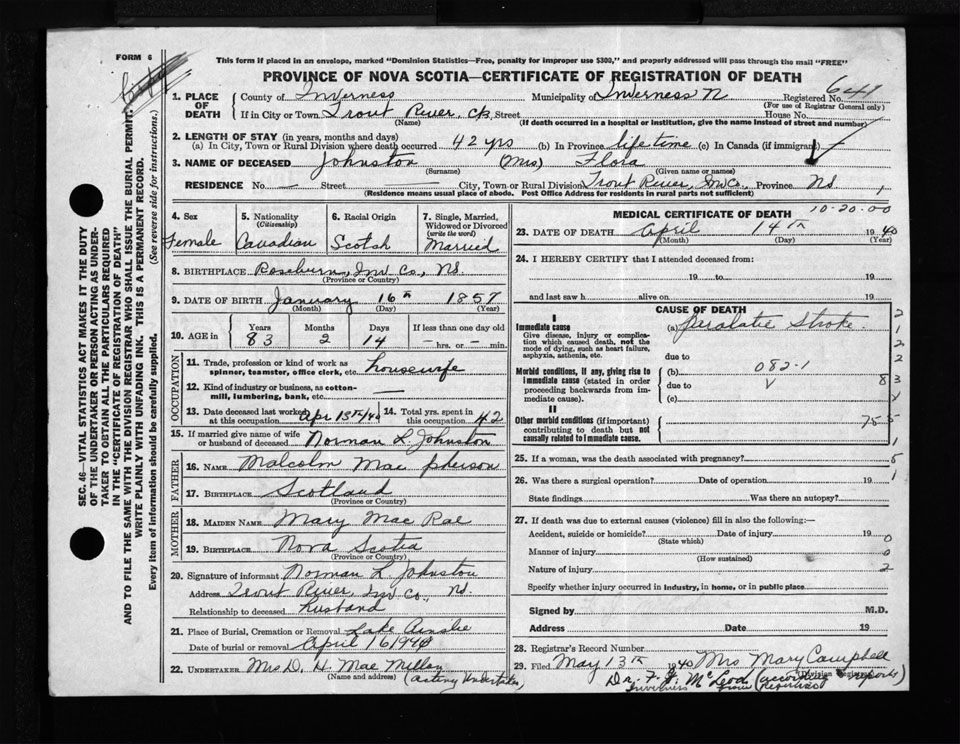 FORM 6
This form if placed in an envelope, marked "Dominion Statistics—Free, penalty for improper use $300," and properly addressed will pass through the mail "FREE"
PROVINCE OF NOVA SCOTIA—CERTIFICATE OF REGISTRATION OF DEATH
1. PLACE OF DEATH
County of Inverness Municipality of Inverness N Registered No. 641
(For use of Registrar General only)
If in City or Town Trout River, CB, Street House No.
(Name) (If death occurred in a hospital or institution, give the name instead of street and number)
2. LENGTH OF STAY (in years, months and days)
(a) In City, Town or Rural Division where death occurred 42 yrs (b) In Province life time (c) In Canada (if immigrant)
3. NAME OF DECEASED Johnston (Mrs) Flora
(Surname) (Given name or names)
RESIDENCE No. — Street — City, Town or Rural Division Trout River, Inv Co, Province NS
(Residence means usual place of abode. Post Office Address for residents in rural parts not sufficient)
4. Sex Female
5. Nationality (Citizenship) Canadian
6. Racial Origin Scotch
7. Single, Married, Widowed or Divorced (write the word) Married
8. BIRTHPLACE Roseburn, Inv Co, NS.
(Province or Country)
9. DATE OF BIRTH January 16th 1857
(Month) (Day) (Year)
10. AGE in Years 83 Months 2 Days 14 If less than one day old — hrs. or — min.
OCCUPATION
11. Trade, profession or kind of work as spinner, teamster, office clerk, etc. housewife
12. Kind of industry or business, as cotton-mill, lumbering, bank, etc. —
13. Date deceased last worked at this occupation Apr 13th/40 14. Total yrs. spent in this occupation 42
15. If married give name of wife or husband of deceased Norman L. Johnston
FATHER
16. NAME Malcolm Mac pherson
17. BIRTHPLACE Scotland
(Province or Country)
MOTHER
18. MAIDEN NAME Mary Mac Rae
19. BIRTHPLACE Nova Scotia
(Province or Country)
20. Signature of informant Norman L. Johnston
Address Trout River, Inv Co., NS.
Relationship to deceased husband
21. Place of Burial, Cremation or Removal Lake Ainslie
Date of burial or removal April 16 1940
22. UNDERTAKER Mrs D. H. Mac Millan
Name and address) (acting Undertaker)
MEDICAL CERTIFICATE OF DEATH 10-20-00
23. DATE OF DEATH April 14th 1940
(Month) (Day) (Year)
24. I HEREBY CERTIFY that I attended deceased from:
19 to 19
and last saw h alive on 19
CAUSE OF DEATH
I
Immediate cause
Give disease, injury or complication which caused death, not the mode of dying, such as heart failure, asphyxia, asthenia, etc.
(a) Paralatic Stroke
due to
Morbid conditions, if any, giving rise to immediate cause (stated in order proceeding backwards from immediate cause).
(b) 082-1
due to
(c)
II
Other morbid conditions (if important) contributing to death but not causally related to immediate cause.
25. If a woman, was the death associated with pregnancy?
26. Was there a surgical operation? Date of operation 19
State findings Was there an autopsy?
27. If death was due to external causes (violence) fill in also the following:—
Accident, suicide or homicide? Date of injury 19
(State which)
Manner of injury
(How sustained)
Nature of injury
Specify whether injury occurred in industry, in home, or in public place
Signed by M.D.
Address Date 19
28. Registrar's Record Number
29. Filed May 13th 1940 Mrs Mary Campbell
Division Registrar
Dr. F. J. McLeod (according
Inverness
SEC. 46—VITAL STATISTICS ACT MAKES IT THE DUTY
OF THE UNDERTAKER OR PERSON ACTING AS UNDER-
TAKER TO OBTAIN ALL THE PARTICULARS REQUIRED
IN THE "CERTIFICATE OF REGISTRATION OF DEATH"
AND TO FILE THE SAME WITH THE DIVISION REGISTRAR WHO SHALL ISSUE THE BURIAL PERMIT.
WRITE PLAINLY WITH UNFADING INK. THIS IS A PERMANENT RECORD.
Every item of information should be carefully supplied. (See reverse side for instructions.)